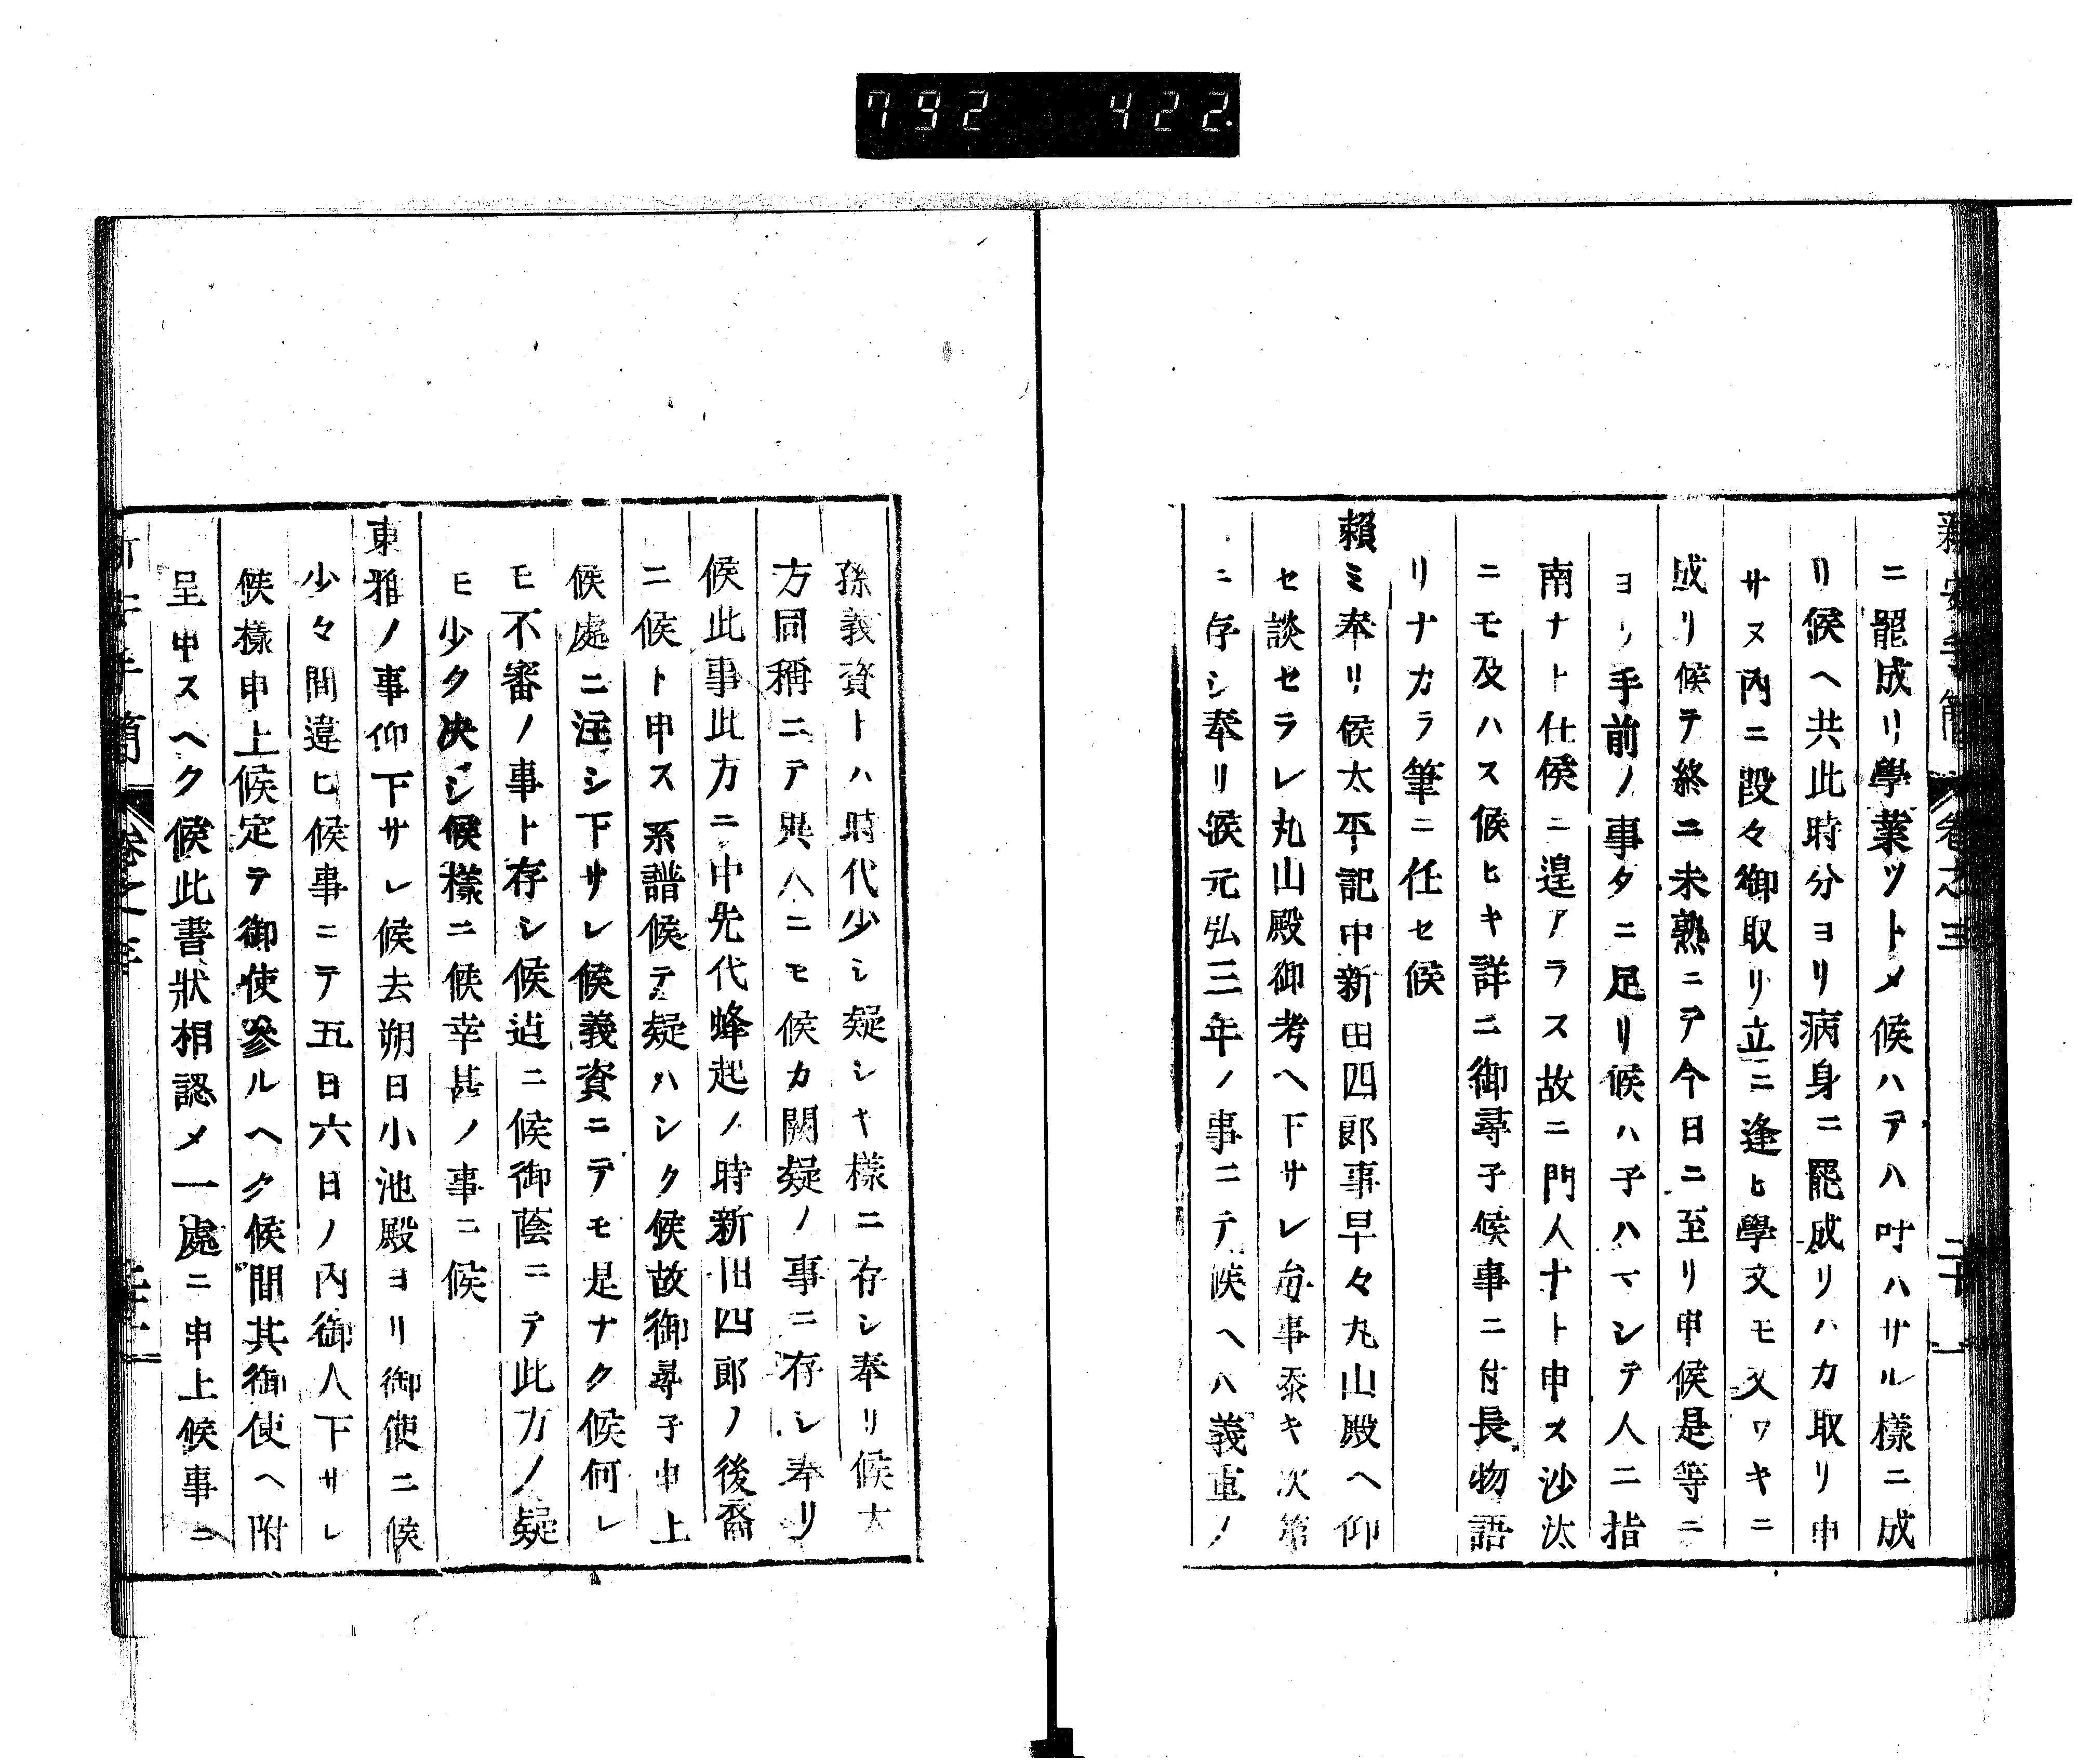 792 422.
ニ罷成リ學業ツトメ候ハテハ叶ハサル樣ニ成
リ候ヘ共此時分ヨリ病身ニ罷成リハカ取リ申
サヌ內ニ段々御取リ立ニ逢ヒ學文モ又ワキニ
成リ候テ終ニ未熟ニテ今日ニ至リ申候是等ニ
ヨリ手前ノ事タニ足リ候ハ子ハマシテ人ニ指
南ナト仕候ニ遑アラス故ニ門人ナト申ス沙汰
ニモ及ハス候ヒキ詳ニ御尋子候事ニ付長物語
リナカラ筆ニ任セ候
賴ミ奉リ候太平記中新田四郎事早々丸山殿ヘ仰
セ談セラレ丸山殿御考ヘ下サレ每事忝キ次第
ニ存シ奉リ候元弘三年ノ事ニテ候ヘハ義重ノ
孫義資トハ時代少シ疑シキ樣ニ存シ奉リ候太
方同稱ニテ異人ニモ候カ闕疑ノ事ニ存シ奉リ
候此事此方ニ中先代蜂起ノ時新田四郎ノ後裔
ニ候ト申ス系譜候テ疑ハシク候故御尋子申上
候處ニ注シ下サレ候義資ニテモ是ナク候何レ
モ不審ノ事ト存シ候迚ニ候御蔭ニテ此方ノ疑
モ少ク決シ候樣ニ候幸甚ノ事ニ候
東雅ノ事仰下サレ候去朔日小池殿ヨリ御使ニ候
少々間違ヒ候事ニテ五日六日ノ內御人下サレ
候樣申上候定テ御使參ルヘク候間其御使ヘ附
呈申スヘク候此書狀相認メ一處ニ申上候事ニ